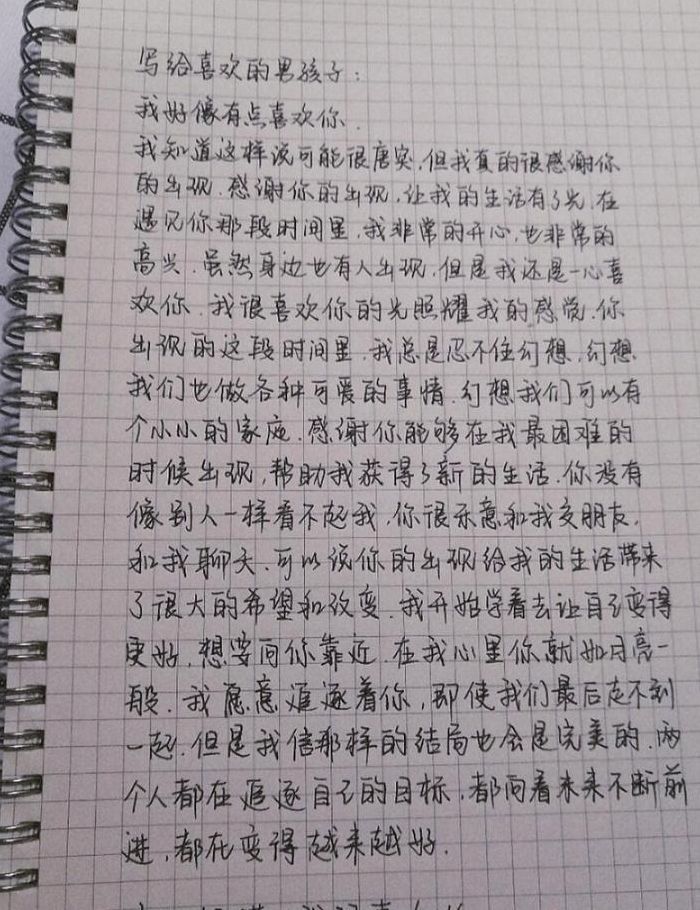 写给喜欢的男孩子:
我好像有点喜欢你.
我知道这样说可能很唐突,但我真的很感谢你
的出现.感谢你的出现,让我的生活有了光.在
遇见你那段时间里,我非常的开心,也非常的
高兴.虽然身边也有人出现,但是我还是一心喜
欢你.我很喜欢你的光照耀我的感觉.你
出现的这段时间里,我总是忍不住幻想,幻想
我们也做各种可爱的事情.幻想我们可以有
个小小的家庭.感谢你能够在我最困难的
时候出现,帮助我获得了新的生活.你没有
像别人一样看不起我,你很乐意和我交朋友,
和我聊天.可以说你的出现给我的生活带来
了很大的希望和改变.我开始学着去让自己变得
更好,想要向你靠近.在我心里你就如月亮一
般.我愿意追逐着你,即使我们最后走不到
一起.但是我信那样的结局也会是完美的.两
个人都在追逐自己的目标,都向着未来不断前
进,都在变得越来越好.